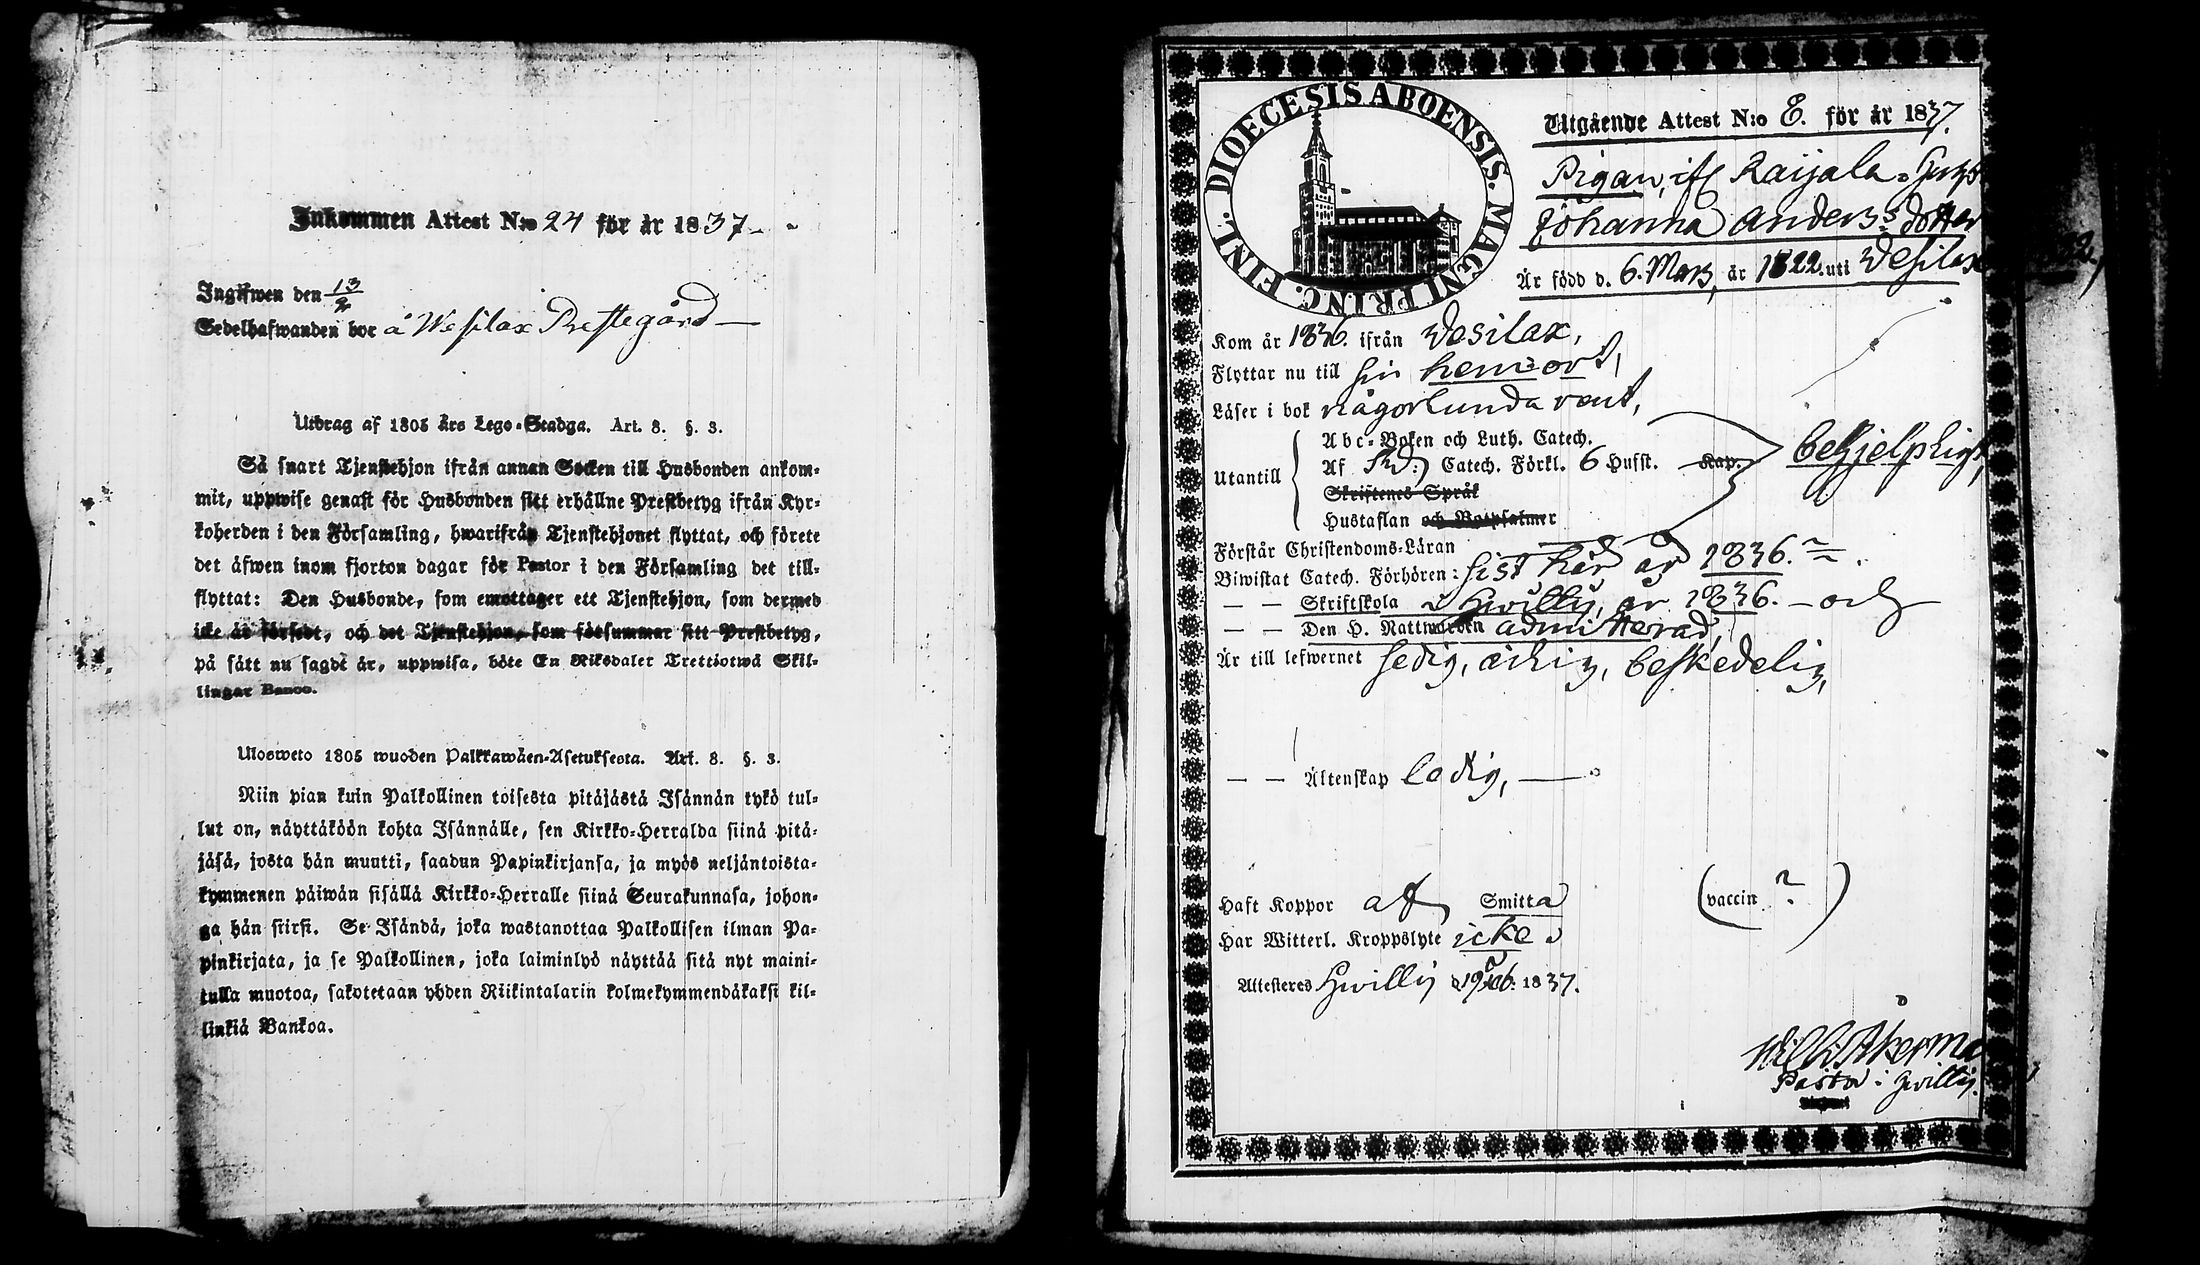 Inkommen Attest N:o 24 för år 1837
Ingifwen den 13/2
Sedelhafwanden bor å Wesilax Prestegård
Utdrag af 1805 års Lego-Stadga. Art. 8. §. 3.
Så snart Tjenstehjon ifrån annan Socken till Husbonden ankom-
mit, uppwise genast för Husbonden sitt erhållne Prestbetyg ifrån Kyr-
koherden i den Församling, hwarifrån Tjenstehjonet flyttat, och förete
det äfwen inom fjorton dagar för Pastor i den Församling det till-
flyttat: Den Husbonde, som emottager ett Tjenstehjon, som dermed
icke är försedt, och det Tjenstehjon, som försummar sitt Prestbetyg,
på sätt nu sagdt är, uppwisa, böte En Riksdaler Trettiotwå Skil-
lingar Banco.
Ulosweto 1805 wuoden Palkkawäen-Asetuksesta. Art. 8. §. 3.
Niin pian kuin Palkollinen toisesta pitäjästä Isännän tykö tul-
lut on, näyttäköön kohta Isännälle, sen Kirkko-Herralda siinä pitä-
jäsä, josta hän muutti, saadun Papinkirjansa, ja myös neljäntoista-
kymmenen päiwän sisällä Kirkko-Herralle siinä Seurakunnasa, johon-
ga hän siirsi. Se Isändä, joka wastanottaa Palkollisen ilman Pa-
pinkirjata, ja se Palkollinen, joka laiminlyö näyttää sitä nyt maini-
tulla muotoa, sakotetaan yhden Riikintalarin kolmekymmendäkaksi kil-
linkiä Bankoa.
DIOECESIS ABOENSIS. MAGNI PRINC. FINL.
Utgående Attest N:o 8. för år 1837.
Pigan, ifr Raijala
Johanna Anders dotter
Är född d. 6. Mars, år 1822. uti Wesilax
Kom år 1836. ifrån Wesilax,
Flyttar nu till sin hemort,
Läser i bok någorlunda rent,
Utantill
Abc-Boken och Luth. Catech.
Af Catech. Förkl. 6 Hufst. Kap.
behjelpligt,
Skriftenes Språk
Hustaflan och Botpsalmer
Förstår Christendoms-Läran
Biwistat Catech. Förhören: sist här år 1836.
— — Skriftskola i Hwittis, år 1836. — och
— — Den H. Nattwarden admitterad,
Är till lefwernet sedig, ärlig, beskedelig,
— — Äktenskap ledig,
Haft Koppor af Smitta (vaccin ? )
Har Witterl. Kroppslyte icke
Attesteras Hwittis d. 19 1837.
Wilh. Åkerma
Pastor i Hwittis.